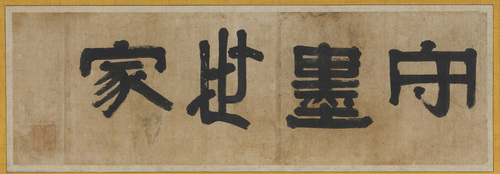 守墨世家